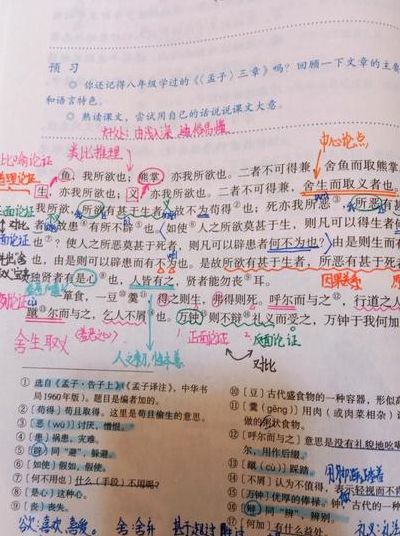 预 习
◎ 你还记得八年级学过的《〈孟子〉三章》吗？回顾一下文章的主要
和语言特色。
◎ 熟读课文，尝试用自己的话说说课文大意。
好处：由浅入深
中心论点
比喻论证
类比推理
鱼，我所欲也；熊掌，亦我所欲也。二者不可得兼，舍鱼而取熊掌
道理论证
生，亦我所欲也；义，亦我所欲也。二者不可得兼，舍生而取义者也
正面论证
我所欲，所欲有甚于生者，故不为苟得②也；死亦我所恶③，所恶有甚
对比
者，故患④有所不辟⑤也。如使⑥人之所欲莫甚于生，则凡可以得生者
也⑦？使人之所恶莫甚于死者，则凡可以辟患者何不为也？由是则生而有
也，由是则可以辟患而有不为也。是故所欲有甚于生者，所恶有甚于死
独贤者有是心⑧也，人皆有之，贤者能勿丧⑨耳。
箪食，一豆⑩羹⑪，得之则生，弗得则死。呼尔而与之⑫，行道之人
蹴⑬尔而与之，乞人不屑⑭也。万钟⑮则不辩⑯礼义而受之，万钟于我何加
舍生取义
正面论证
反面论证
人之初，性本善
对比
① 选自《孟子·告子上》（《孟子译注》，中华书
局1960年版）。题目是编者加的。
② 〔苟得〕苟且取得。这里是苟且偷生的意思。
③ 〔恶（wù）〕讨厌，憎恨。
④ 〔患〕祸患，灾难。
⑤ 〔辟〕同“避”，躲避。
⑥ 〔如使〕假如，假使。
⑦ 〔何不用也〕什么（手段）不用呢？
⑧ 〔是心〕这种心。
⑨ 〔丧〕丧失。
⑩ 〔豆〕古代盛食物的一种容器，形似高
⑪ 〔羹（gēng）〕用肉（或肉菜相杂）
做的 状食物。
⑫ 〔呼尔而与之〕意思是没有礼貌地吆喝
尔，用作后缀。
⑬ 〔蹴（cù）〕踩踏。
用脚踩踏
⑭ 〔不屑〕认为不值得，表示轻视而不肯
⑮ 〔万钟〕优厚的俸禄。钟，古代的一种
⑯ 〔辩〕同“辨”，辨别。
⑰ 〔何加〕有什么益处。
欲：喜欢，喜爱。 舍：舍弃